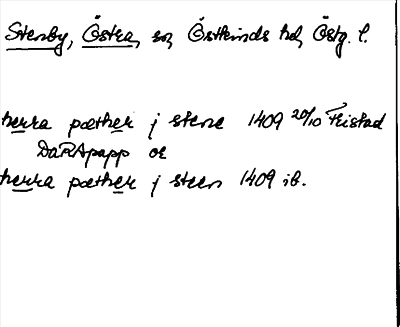 Stenby, Östra, sn, Östkinds hd, Östg. l.
herra pæther j stene 1409 20/10
DaRApapp or
herra pæther j steen 1409 ib.